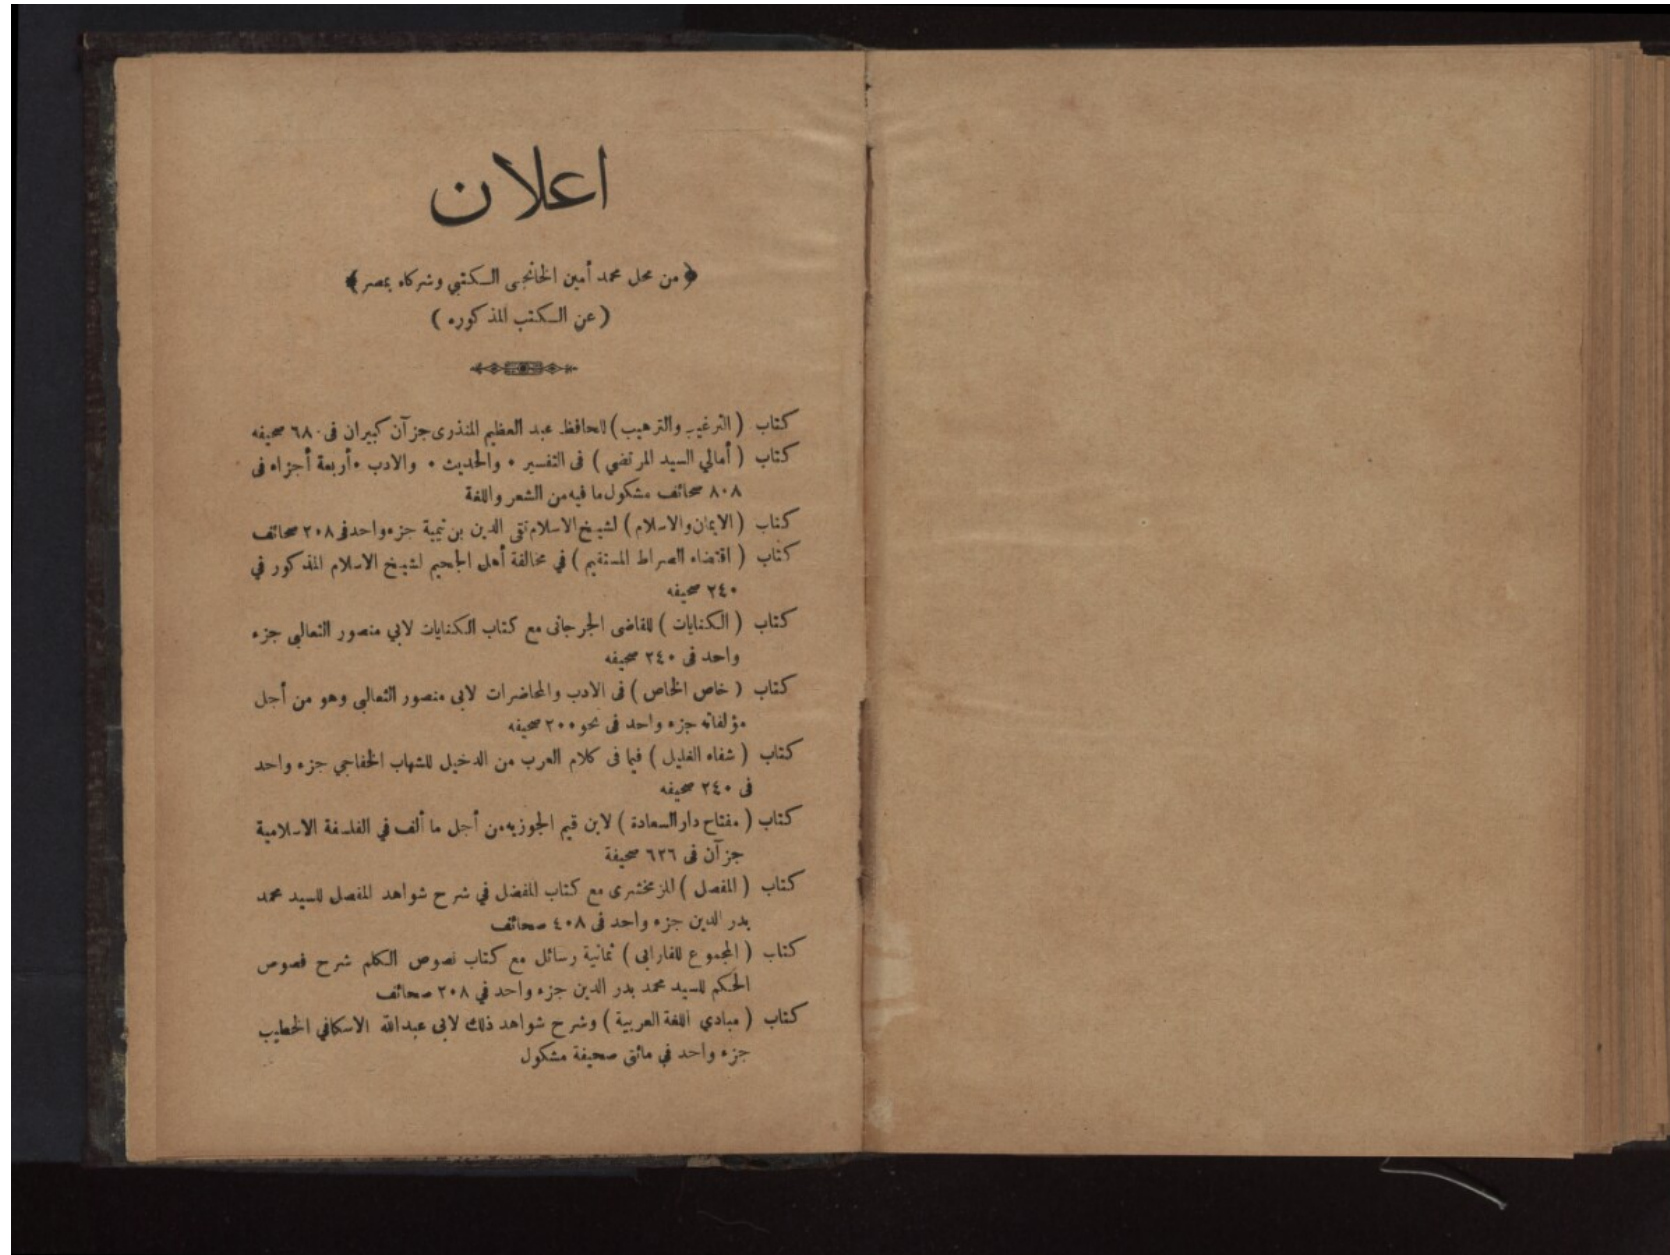 اعلان
﴿ من محل محمد أمين الخانجى الكتبي وشركاه بمصر ﴾
( عن الكتب المذكوره )
كتاب ( الترغيب والترهيب ) للحافظ عبد العظيم المنذرى جزآن كبيران فى ٦٨٠ صحيفه
كتاب ( أمالي السيد المرتضي ) فى التفسير ٠ والحديث ٠ والادب ٠ أربعة أجزاء فى
٨٠٨ صحائف مشكول ما فيه من الشعر واللغة
كتاب ( الايمان والاسلام ) لشيخ الاسلام تقى الدين بن تيمية جزء واحد فى ٢٠٨ صحائف
كتاب ( اقتضاء الصراط المستقيم ) في مخالفة أهل الجحيم لشيخ الاسلام المذكور في
٢٤٠ صحيفه
كتاب ( الكنايات ) للقاضى الجرجانى مع كتاب الكنايات لابي منصور الثعالبى جزء
واحد فى ٢٤٠ صحيفه
كتاب ( خاص الخاص ) فى الادب والمحاضرات لابى منصور الثعالبى وهو من أجل
مؤلفاته جزء واحد فى نحو ٢٠٠ صحيفه
كتاب ( شفاء الغليل ) فيما فى كلام العرب من الدخيل للشهاب الخفاجي جزء واحد
فى ٢٤٠ صحيفه
كتاب ( مفتاح دار السعادة ) لابن قيم الجوزيه من أجل ما ألف في الفلسفة الاسلامية
جزآن فى ٦٢٦ صحيفة
كتاب ( المفصل ) للزمخشرى مع كتاب المفضل في شرح شواهد المفصل للسيد محمد
بدر الدين جزء واحد فى ٤٠٨ صحائف
كتاب ( المجموع للفارابى ) ثمانية رسائل مع كتاب نصوص الكلم شرح فصوص
الحكم للسيد محمد بدر الدين جزء واحد في ٢٠٨ صحائف
كتاب ( مبادي اللغة العربية ) وشرح شواهد ذلك لابى عبد الله الاسكافي الخطيب
جزء واحد في مائتى صحيفة مشكول